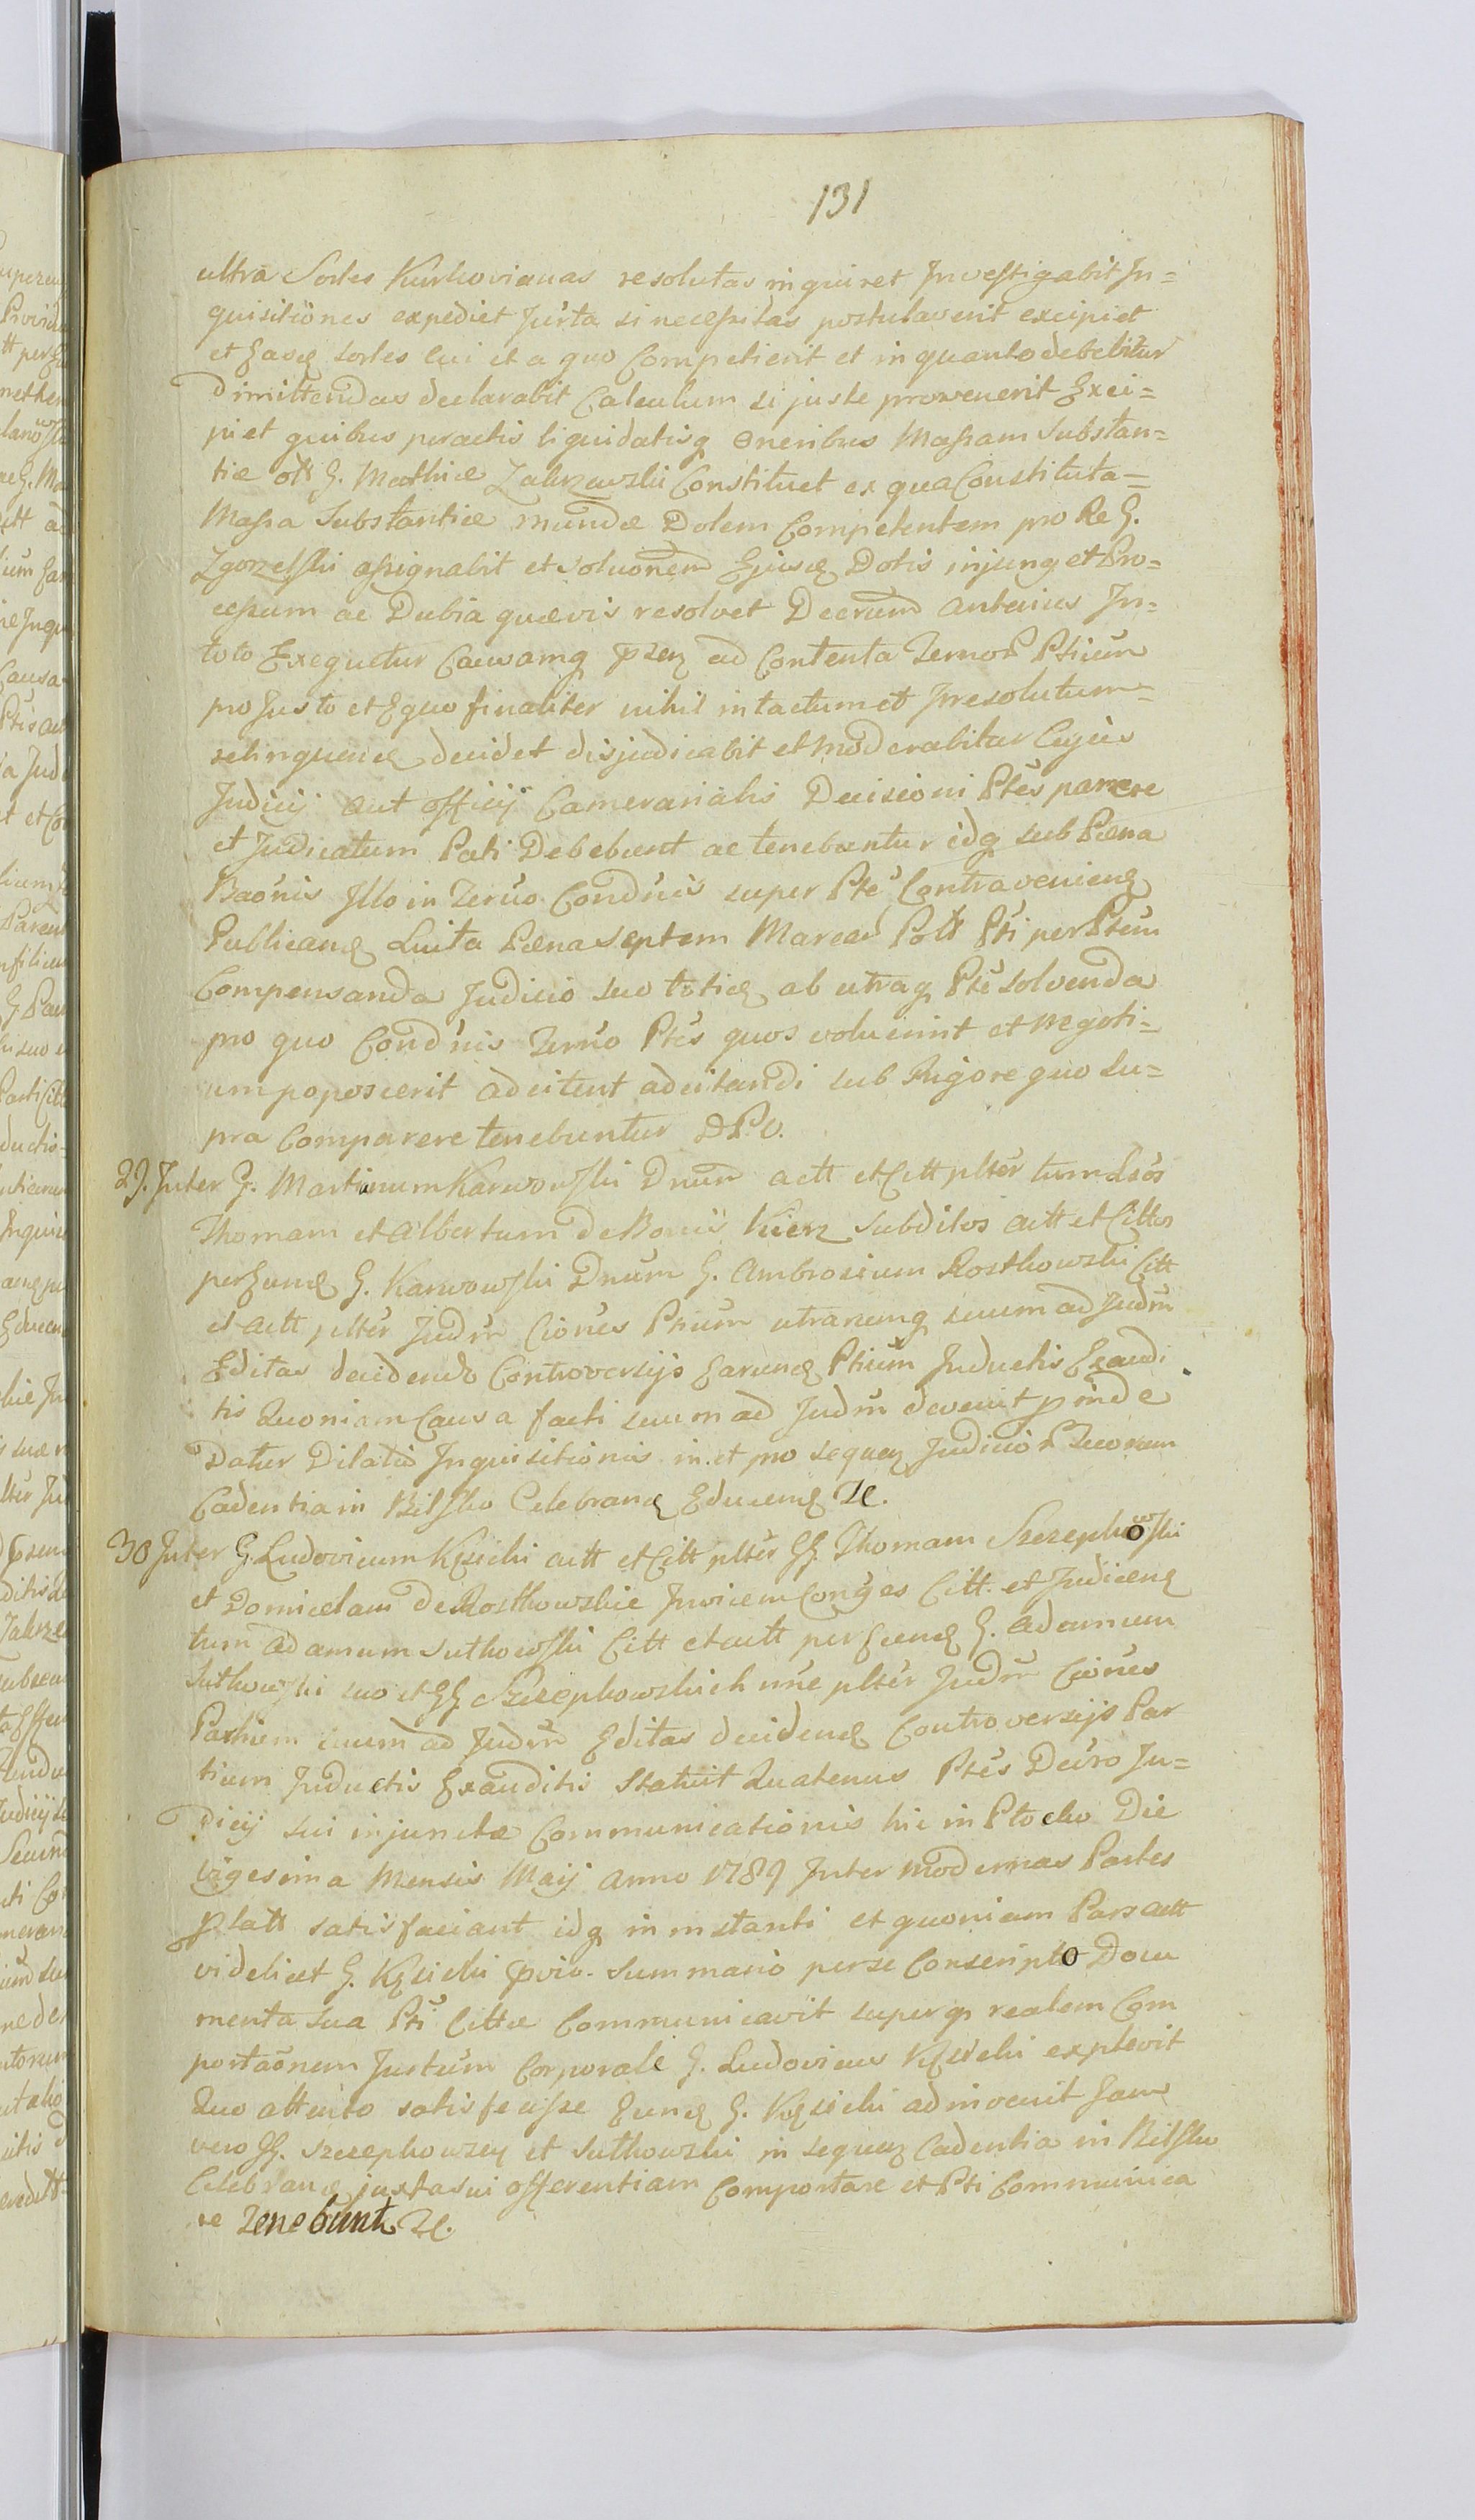 131
ultra Sortes Kurkovianas resolutas inquiret Investigabit In=
quisitiones expediet Jurta si necessitas postulaverit excipiet
et Easq sortes cui et a quo Competierit et in quanto debebitur
Dimittendas declarabit Calculum si juste provenerit Exci=
piet quibus peractis liquidatisq Oneribus Massam Substan=
tiæ G. Mathiæ Zakrzewski Constituet ex qua Constituta=
Massa Substantiæ mundæ Dotem Competentem pro Re G.
Zgorzelski assignabit et Soluonem Ejusq Dotis injunget Pro=
cessum ac Dubia quævis resolvet Decrum anterius In=
toto Exequetur Causamq przn ad Contenta Termor Ptium
pro Justo et Equo finaliter nihil intactum et Irresolutum=
relinquenq decidet disjudicabit et moderabitur Cujus
Judicij aut officij Camerarialis Decisioni Ptes parrere
et Judicatum Pati Debebunt ac tenebuntur idq sub Pæna
Baonis Illo in Termo Condnis super Pte Contravenienq
Publicanq Luita Pæna Septem Marcar Poll Pti per Ptem
Compensanda Judicio suo totiq ab utraq Pte solvenda
pro quo Condnis Termo Ptes quos voluerint et Negoti=
um poposcerit adcitent adcitandi sub Rigore quo Su=
pra Comparere tenebuntur D.P.O.
29. Inter G. Martinum Karwowski Dnum act et Citt plter tum Lsos
Thomam et Albertum de Bonis Kierz Subditos actt et Cittos
per Eunq G. Karwowski Dnum G. Ambrosium Rostkowski Citt
et actt plter Judm Ciones Ptium utrarumq suum ad Judm
Editas decidendo Controversijs Earunq Ptium Inductis Exaudi
tis Quoniam Causa facti suum ad Judm devenit pinde
Datur Dilatio Inquisitionis in et pro sequen Judicior Suorum
Cadentia in Bilsko Celebranq Educenq Ze.
30 Inter G. Ludovicum Kęsicki actt et Citt plter GG. Thomam Szczepkowski
et Domicelam de Rostkowskie Invicem Conges Citt. et Judicenq
tum Adamum Sutkowski Citt et actt per Eunq G. Adamum
Sutkowski suo et GG Szczepkowskich nne plter Judm Ciones
Partium suum ad Judm Editas decidenq Controversijs Par
tium Inductis Exauditis Statuit Quatenus Ptes Decro Ju=
dicij sui injunctæ Communicationis hic in Plocko Die
Vigesima Mensis Maij Anno 1789 Inter Modernas Partes
platt satisfaciant idq in instanti et quoniam Pars actt
videlicet G. Kęsicki pvio. Summario per se Conscripto Docu
menta sua Pti Cittæ Communicavit superq realem Com
portaonem Jurtum Corporale G. Ludovicus Kęsicki explevit
Quo attento satisfecisse Eunq G. Kęsicki adinvenit Jam
vero GG. Szczepkowscy et Sutkowski in sequen Cadentia in Bilsku
Celebranq juxta sui offerentiam Comportare et Pti Communica
re Tenebunt Ze.